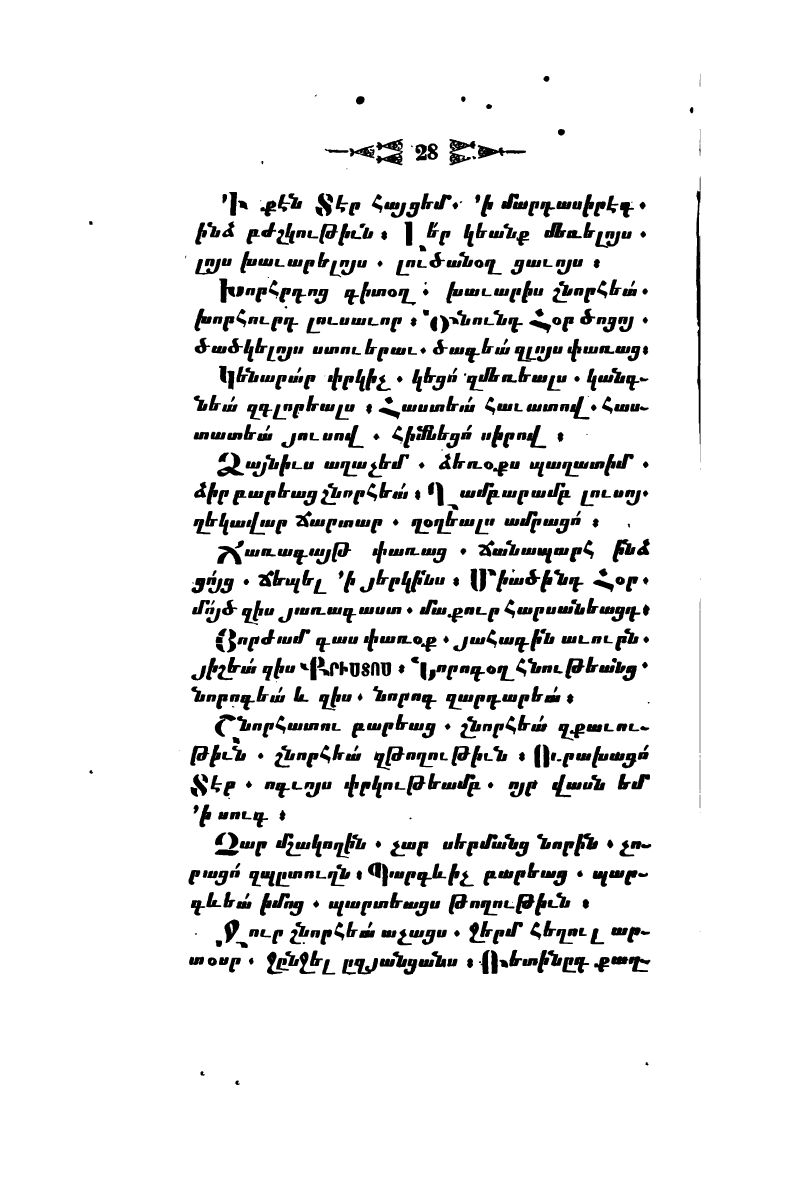 28
՚Ի քէն Տէր հայցեմ. ՚ի մարդասիրէդ.
ինձ բժշկութիւն : Լեր կեանք մեռելոյս.
լոյս խաւարելոյս. լուծանօղ ցաւոյս :
Խորհրդոց գիտօղ. խաւարիս շնորհեա՛.
խորհուրդ լուսաւոր : Ծնունդ Հօր ծոցոյ.
ծածկելոյս ստուերաւ. ծագեա՛ զլոյս փառաց:
Կենարար փրկիչ. կեցո՛ զմեռեալս. կանգ-
նեա՛ զգլորեալս : Հաստեա՛ հաւատով. հաս-
տատեա՛ յուսով. հիմնեցո՛ սիրով :
Ձայնիւս աղաչեմ. ձեռօքս պաղատիմ.
ձիր բարեաց շնորհեա՛ : Ղամբարամբ լուսոյ.
ղեկավար ճարտար. ղօղեալս ամրացո՛ :
Ճառագայթ փառաց. ճանապարհ ինձ
ցո՛յց. ճեպել ՚ի յերկինս : Միածինդ Հօր.
մո՛յծ զիս յառագաստ. մաքուր հարսանեացդ:
Յորժամ գաս փառօք. յահագին աւուրն.
յիշեա՛ զիս ՔՐԻՍՏՈՍ : Նորոգօղ հնութեանց.
նորոգեա՛ և զիս. նորոգ զարդարեա՛ :
Շնորհատու բարեաց. շնորհեա՛ զքաւու-
թիւն. շնորհեա՛ զթողութիւն : Ուրախացո՛
Տէր. ոգւոյս փրկութեամբ. ոյր վասն եմ
՚ի սուգ :
Չար մշակողին. չար սերմանց նորին. չո-
րացո՛ զպըտուղն : Պարգևիչ բարեաց. պար-
գևեա՛ իմոց. պարտեացս թողութիւն :
Ջուր շնորհեա՛ աչացս. ջերմ հեղուլ ար-
տօսր. ջընջել ըզյանցանս : Ռետինըդ քաղ-